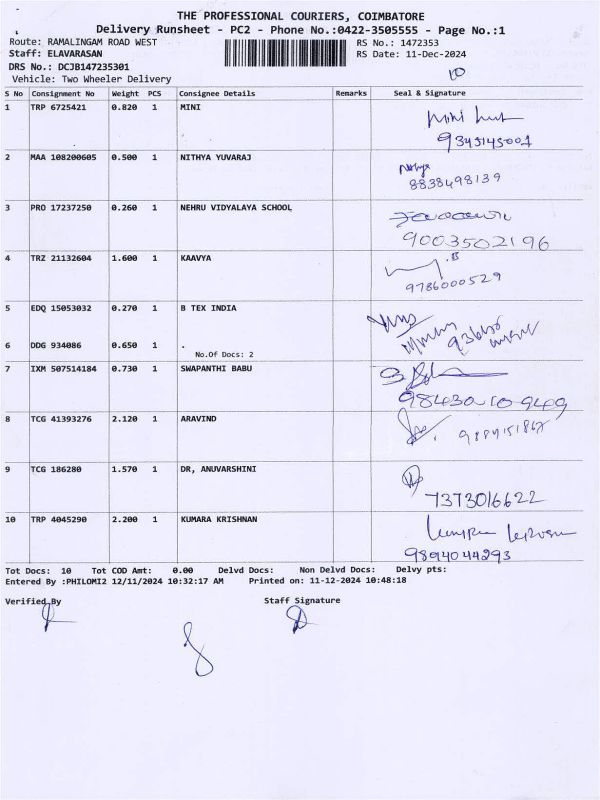 THE PROFESSIONAL COURIERS, COIMBATORE
Delivery Runsheet - PC2 - Phone No.:0422-3505555 - Page No.:1
Route: RAMALINGAM ROAD WEST
RS No.: 1472353
Staff: ELAVARASAN
RS Date: 11-Dec-2024
DRS No.: DCJB147235301
10
Vehicle: Two Wheeler Delivery
S No Consignment No Weight PCS Consignee Details Remarks Seal & Signature
1 TRP 6725421 0.820 1 MINI
9345145001
2 MAA 108200605 0.500 1 NITHYA YUVARAJ
Nithya
8838498139
3 PRO 17237250 0.260 1 NEHRU VIDYALAYA SCHOOL
9003502196
4 TRZ 21132604 1.600 1 KAAVYA
9786000529
5 EDQ 15053032 0.270 1 B TEX INDIA
6 DDG 934086 0.650 1 .
No.Of Docs: 2
7 IXM 507514184 0.730 1 SWAPANTHI BABU
8 TCG 41393276 2.120 1 ARAVIND
9 TCG 186280 1.570 1 DR, ANUVARSHINI
7373016622
10 TRP 4045290 2.200 1 KUMARA KRISHNAN
9894044293
Tot Docs: 10 Tot COD Amt: 0.00 Delvd Docs: Non Delvd Docs: Delvy pts:
Entered By :PHILOMI2 12/11/2024 10:32:17 AM Printed on: 11-12-2024 10:48:18
Verified By Staff Signature